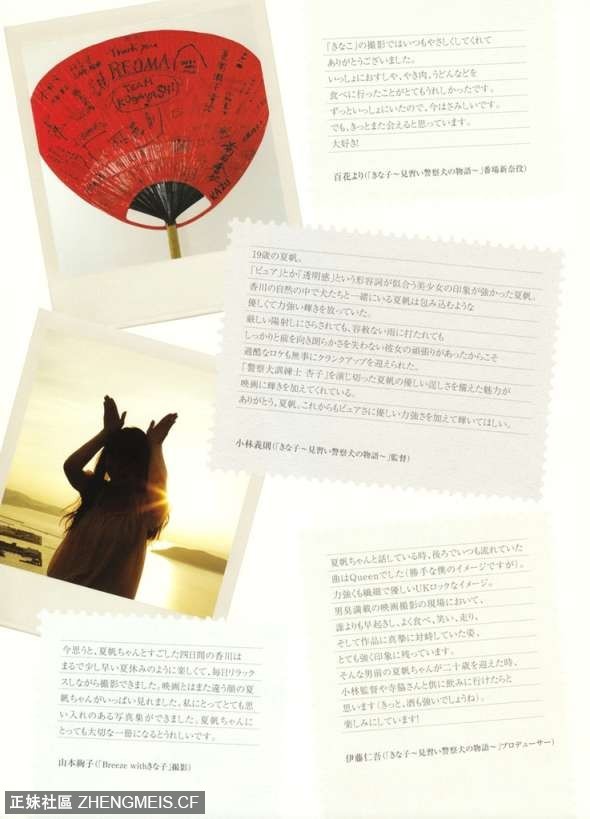 Thank you
REOMA
TEAM
KOBAYASHI
KAZU
「きなこ」の撮影ではいつもやさしくしてくれて
ありがとうございました。
いっしょにおすしや、やき肉、うどんなどを
食べに行ったことがとてもうれしかったです。
ずっといっしょにいたので、今はさみしいです。
でも、きっとまた会えると思っています。
大好き!
百花より(「きな子〜見習い警察犬の物語〜」番場新奈役)
19歳の夏帆。
「ピュア」とか「透明感」という形容詞が似合う美少女の印象が強かった夏帆。
香川の自然の中で犬たちと一緒にいる夏帆は包み込むような
優しくて力強い輝きを放っていた。
厳しい陽射しにさらされても、容赦ない雨に打たれても
しっかりと前を向き朗らかさを失わない彼女の頑張りがあったからこそ
過酷なロケも無事にクランクアップを迎えられた。
「警察犬訓練士 杏子」を演じ切った夏帆の優しい逞しさを備えた魅力が
映画に輝きを加えてくれている。
ありがとう、夏帆。これからもピュアさに優しい力強さを加えて輝いてほしい。
小林義則(「きな子〜見習い警察犬の物語〜」監督)
夏帆ちゃんと話している時、後ろでいつも流れていた
曲はQueenでした(勝手な僕のイメージですが)。
力強くも繊細で優しいUKロックなイメージ。
男臭満載の映画撮影の現場において、
誰よりも早起きし、よく食べ、笑い、走り、
そして作品に真摯に対峙していた姿、
とても強く印象に残っています。
そんな男前の夏帆ちゃんが二十歳を迎えた時、
小林監督や寺脇さんと供に飲みに行けたらと
思います(きっと、酒も強いでしょうね)。
楽しみにしています!
伊藤仁吾(「きな子〜見習い警察犬の物語〜」プロデューサー)
今思うと、夏帆ちゃんとすごした四日間の香川は
まるで少し早い夏休みのように楽しくて、毎日リラック
スしながら撮影できました。映画とはまた違う顔の夏
帆ちゃんがいっぱい見れました。私にとってとても思
い入れのある写真集ができました。夏帆ちゃんに
とっても大切な一冊になるとうれしいです。
山本絢子(「Breeze withきな子」撮影)
正妹社區 ZHENGMEIS.CF